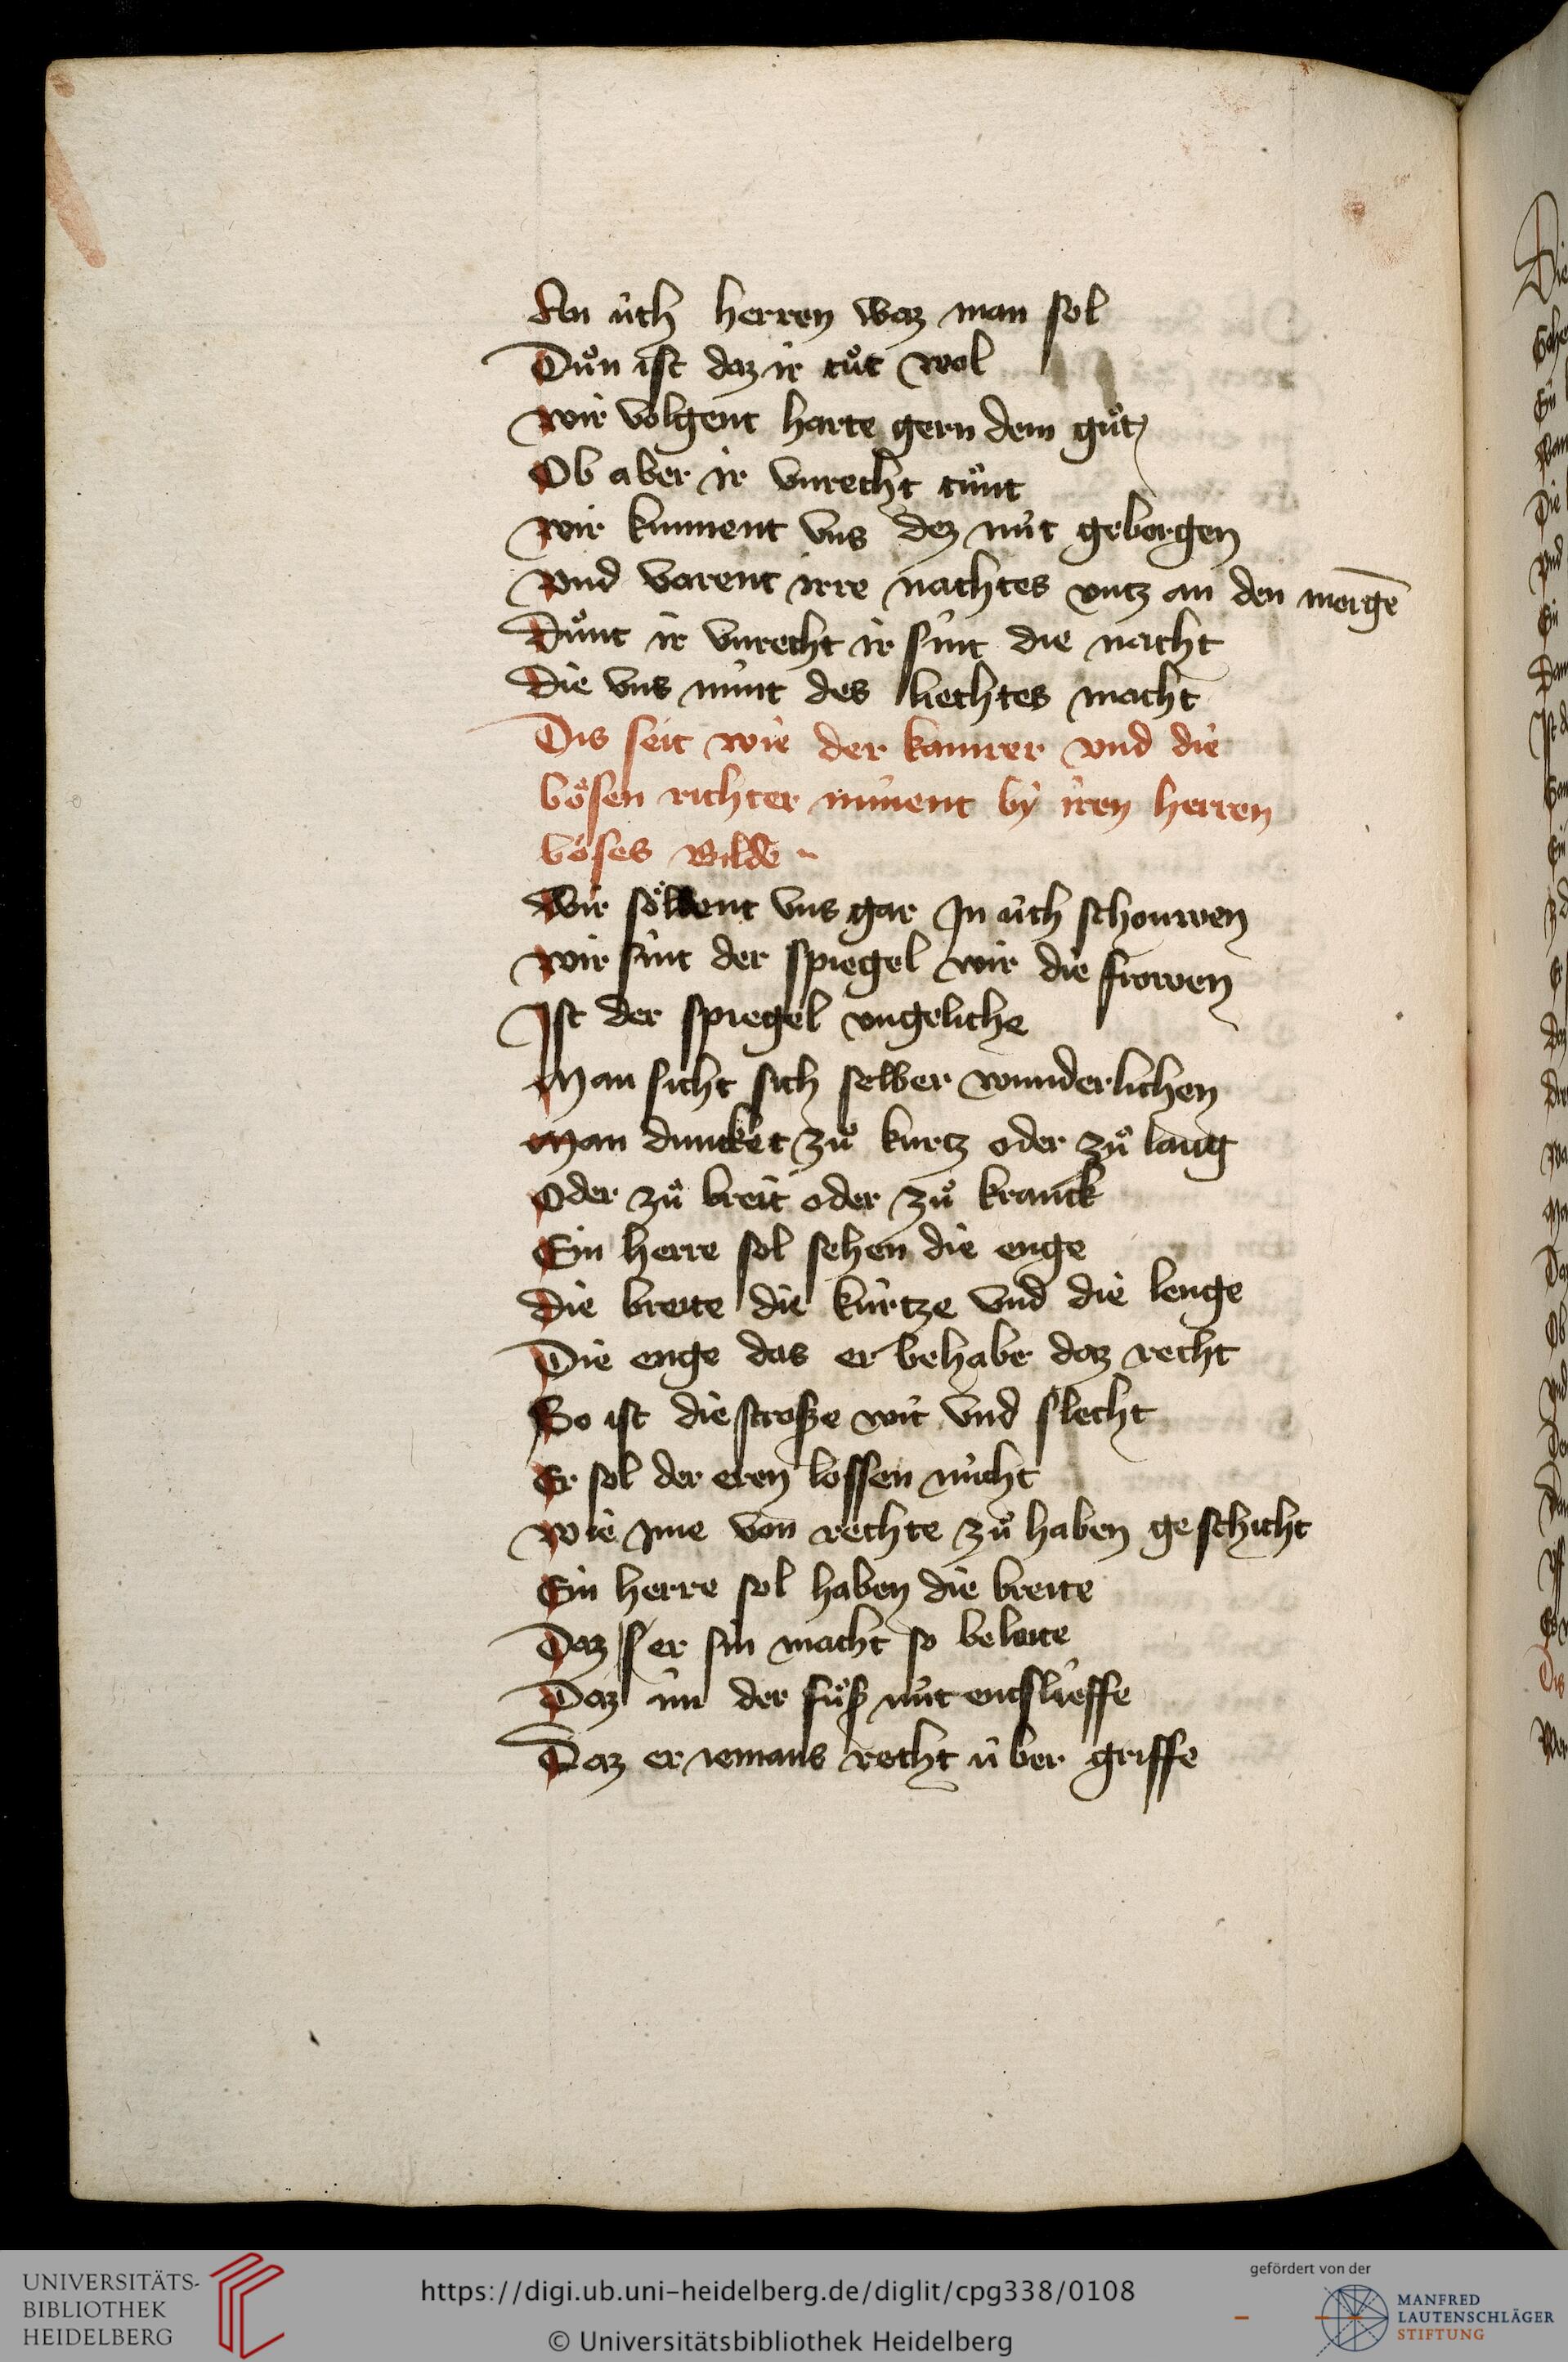 An úch herren waz man sol
Duͦn ist daz ir tuͦt wol
Wir volgent harte gern dem guͦt
Ob aber ir vnrecht tuͦnt
Wir kunnent vns dez nút geborgen
Vnd varent irre nachtes vntz an den morgē
Duͦnt ir vnrecht ir sint die nacht
Die vns nimt des liechtes macht
Dis seit wie der kamrer vnd die
boͤsen richter niment by iren herren
boͤses Bilde
Wir soͤllent vns gar In úch schouwen
Wir sint der spiegel wir die frowen
Ist der spiegel vngeliche
Man sicht sich selber wunderlichen
Man duncket zuͦ kurtz oder zuͦ lang
Oder zuͦ breit oder zuͦ kranck
Ein herre sol sehen die enge
Die breite die kúrtze vnd die lenge
Die enge das er behabe daz recht
So ist die strosze wit vnd slecht
Er sol der eren lossen nicht
Wie ime von rechte zuͦ haben geschicht
Ein herre sol haben die breite
Daz er sin macht so beleite
Daz im der fuͦsz nút entslieffe
Daz er iemans recht úber griffe
UNIVERSITÄTS-
BIBLIOTHEK
HEIDELBERG
https://digi.ub.uni-heidelberg.de/diglit/cpg338/0108
© Universitätsbibliothek Heidelberg
gefördert von der
MANFRED
LAUTENSCHLÄGER
STIFTUNG